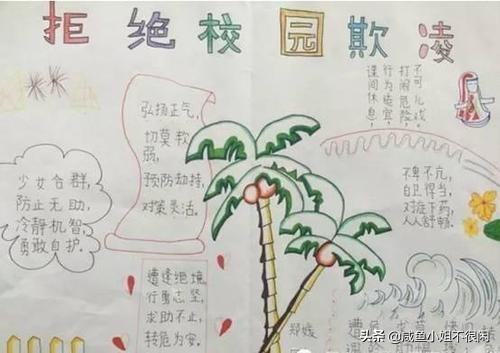 拒绝校园欺凌
课间休息，
行为适宜，
打闹危险，
不可儿戏。
弘扬正气，
切莫软
弱，
预防劫持，
对策灵活。
少女合群，
防止无助，
冷静机智，
勇敢自护。
不卑不亢，
自卫得当，
对症下药，
人人舒畅。
遭逢绝境，
行勇志坚，
求助不止，
转危为安。
郑媛
头条 @咸鱼小姐不很闲